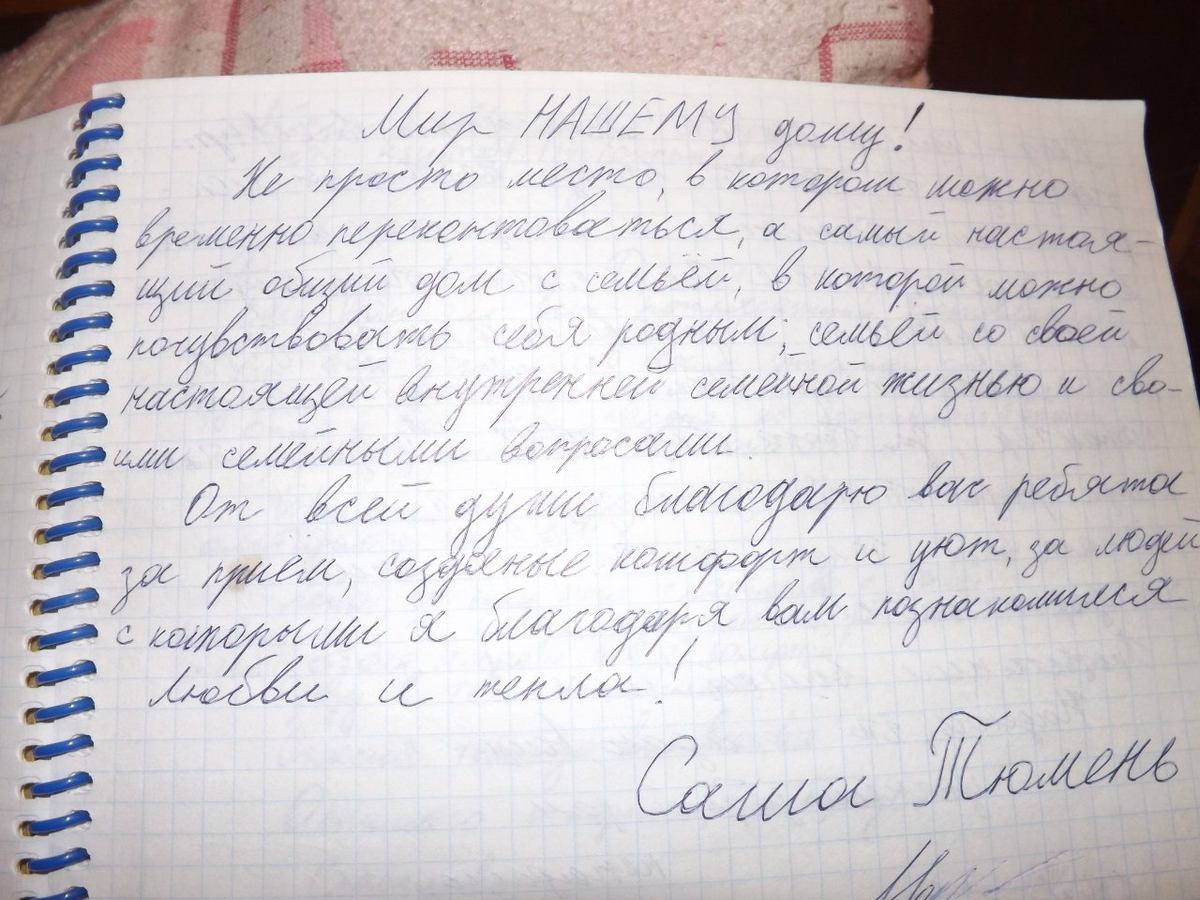 Мир НАШЕМУ дому!
Не просто место, в котором можно
временно перекантоваться, а самый настоя-
щий общий дом с семьёй, в которой можно
почувствовать себя родным; семьёй со своей
настоящей внутренней семейной жизнью и сво-
ими семейными вопросами.
От всей души благодарю вас ребята
за приём, созданые комфорт и уют, за людей
с которыми я благодаря вам познакомился
Любви и тепла!
Саша Тюмень